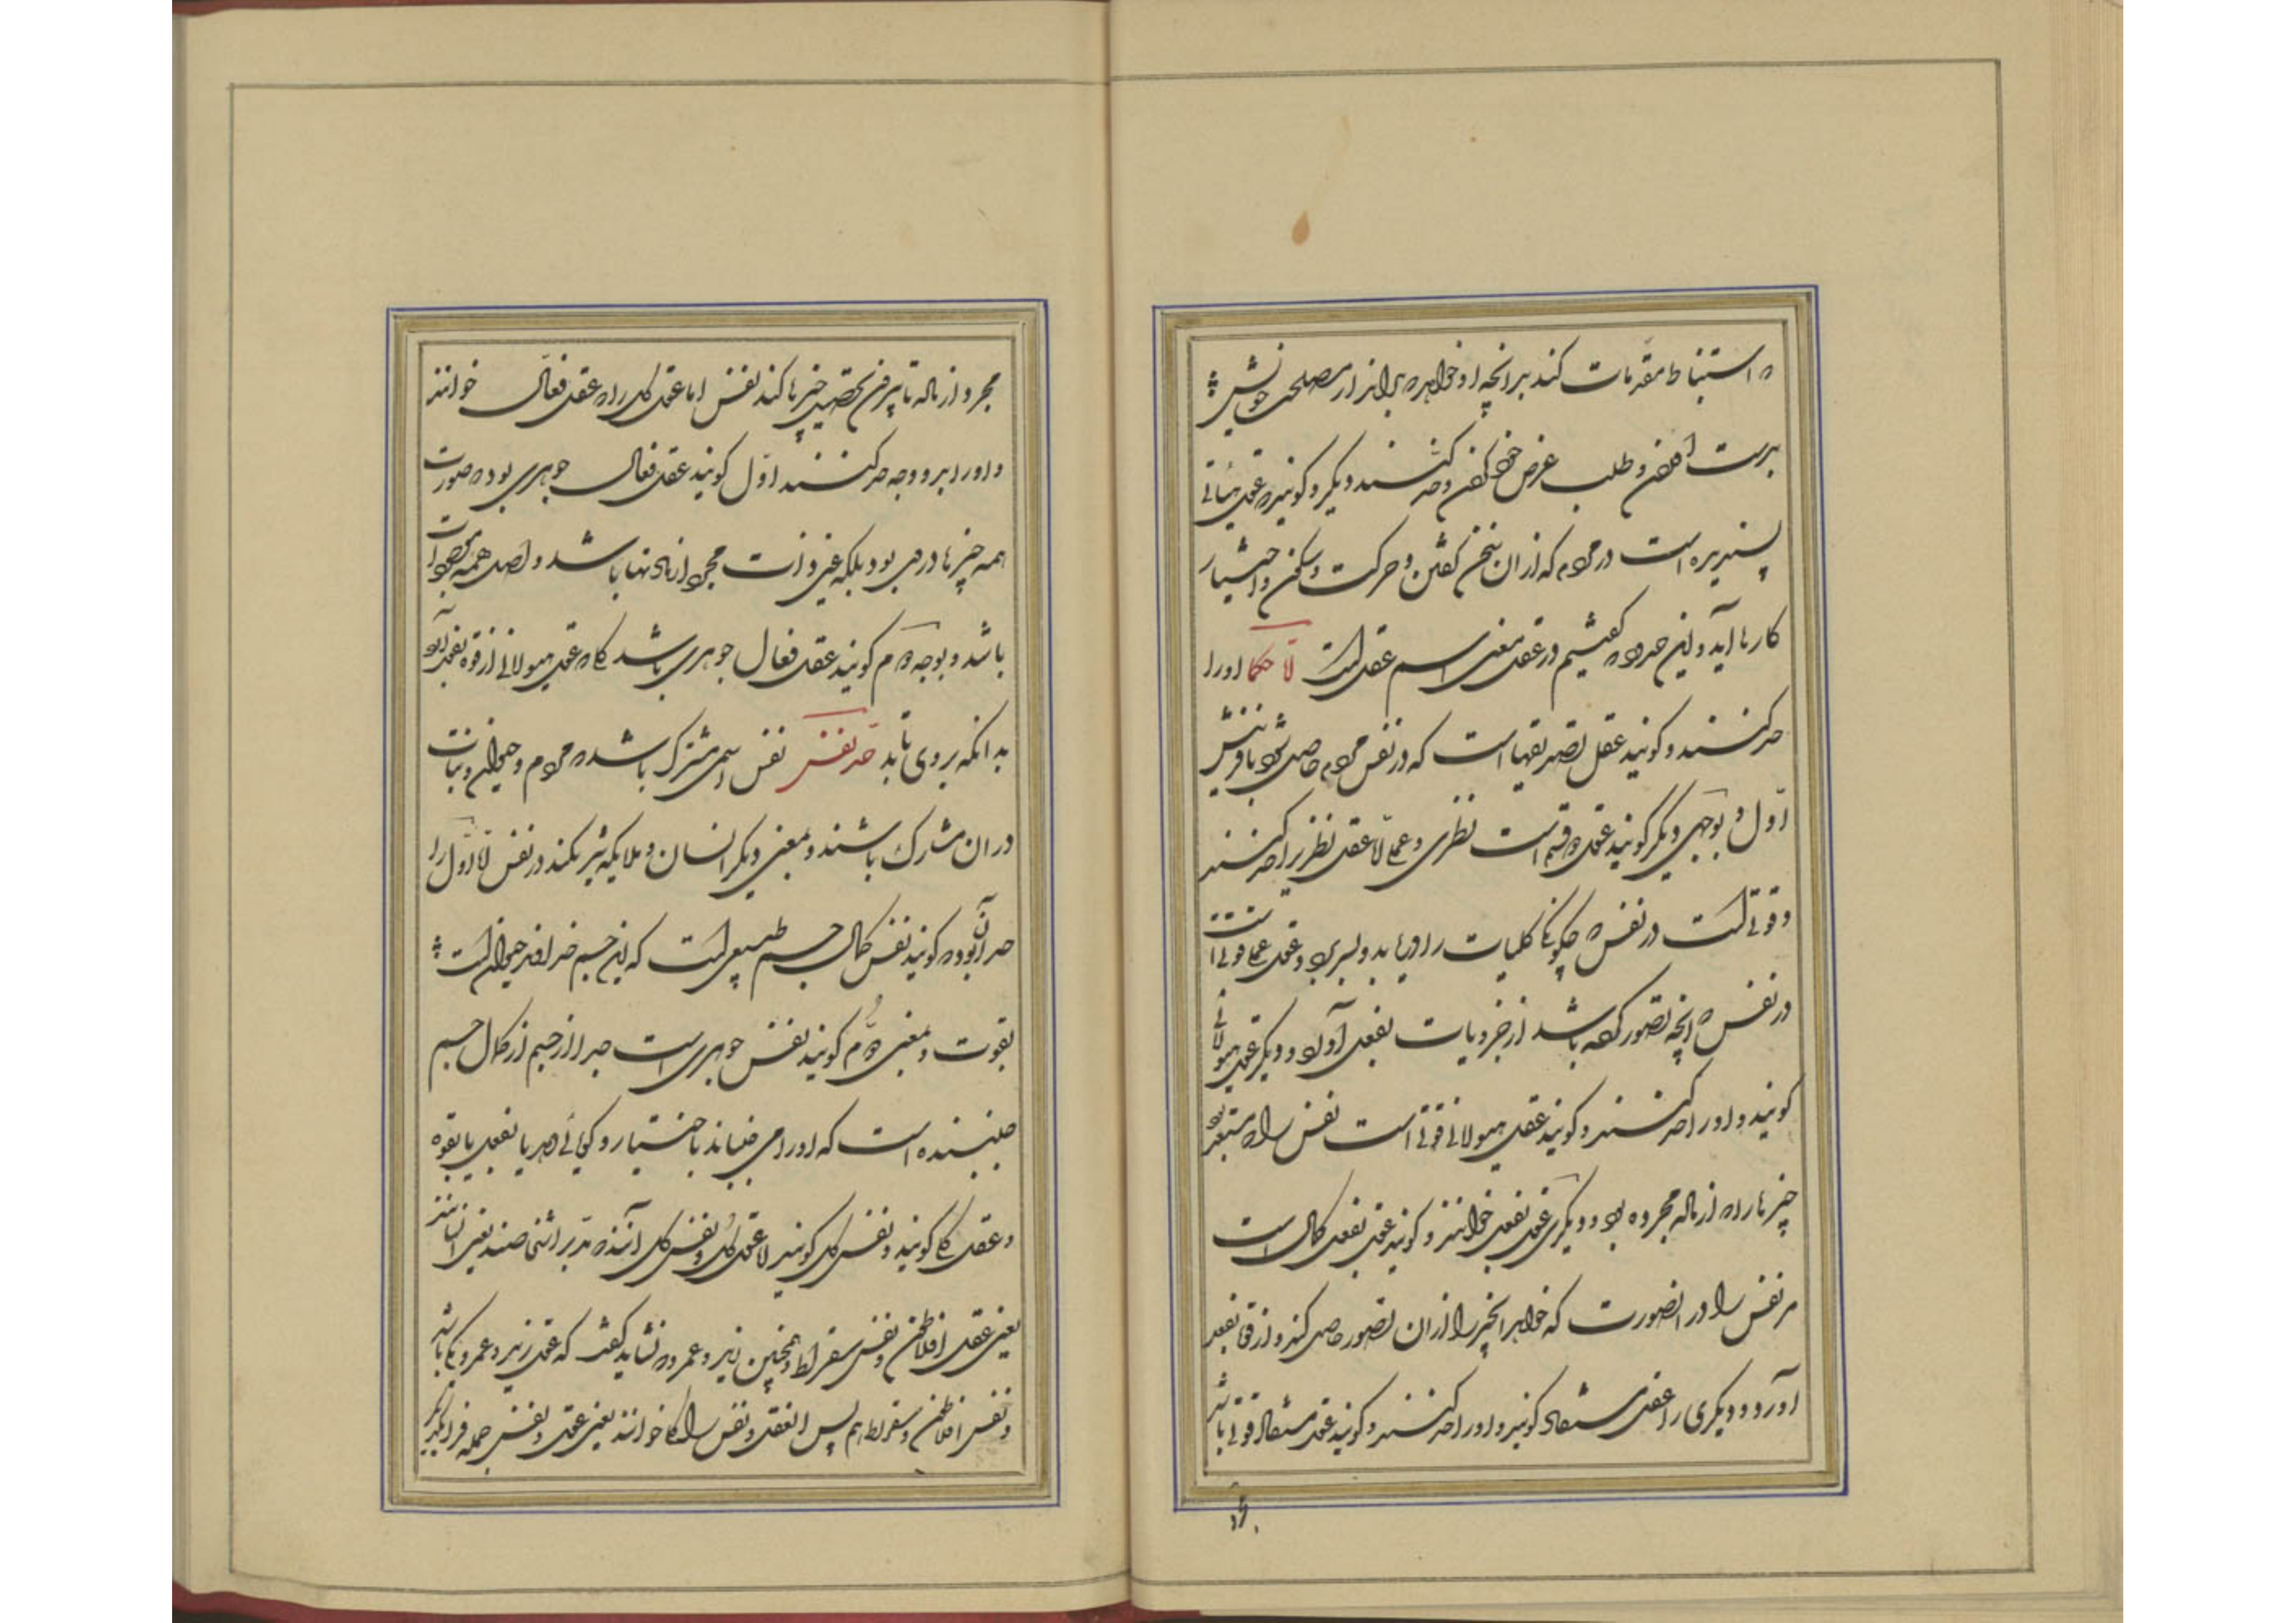 که استنباط مقدمات کند بر آنچه او خواهد که براند از مصلحت خویش
بدست افکندن و طلب غرض خود کردن وحد کنند دیگر و گویند که عقل هیاتی
پسندیده است در مردم که از آن سخن گفتن و حرکت و سکون و اختیار
کارها آید و این حد که گفتیم در عقل بمعنی اسم عقل است امّا حکما او را
حد کنند و گویند عقل تصدیقها است که در نفس مردم حاصل شود بآفرینش
اوّل و بوجهی دیگر گویند عقل دو قسم است نظری و عملی امّا عقل نظری را حد کنند
و قوتی است در نفس که چگونگی کلیات را دریابد و بپذیرد و عقل عملی قوتی است
در نفس که آنچه تصور کرده باشد از جزویات بفعل آورد و دیگر عقل هیولانی
گویند و او را حد کنند و گویند عقل هیولانی قوتی است نفس را که مستعد بود
چیزها را که از ماده مجرد بود و دیگری عقل بفعل خوانند و گویند عقل بفعل کمال است
مر نفس را در آن صورت که خواهد آن چیز را از آن تصور حاصل کند و از قوه بفعل
آورد و دیگری را عقل مستفاد گویند و او را حد کنند و گویند عقل مستفاد قوتی باشد
مجرد از ماده تا بیرون تحصیل چیزها کند نفس اما عقل کل را که عقل فعّال خوانند
و او را بر دو وجه حد کنند اوّل گویند عقل فعال جوهری بود که صورت
همه چیزها در وی بود بلکه عین ذات مجرد از مادتها باشد و اصل همه موجودات
باشد و بوجه دوم گویند عقل فعال جوهری باشد که عقل هیولانی از قوه بفعل آید
بدانکه بروی تابد حد نفس نفس اسمی مشترک باشد که مردم و حیوان و نبات
در آن مشارک باشند و بمعنی دیگر انسان و ملایکه شریکند در نفس امّا اوّل را
حد آن بود که گویند نفس کمال جسم طبیعی است که این جسم خداوند حیوان است
بقوت و بمعنی دوم گویند نفس جوهری است جدا از جسم از کمال جسم
جنبنده است که او را می‌جنباند باختیار و گویائی دهد یا بفعل یا بقوه
و عقل کلی گویند و نفس کلی گویند امّا عقل کل و نفس کل
یعنی عقل افلاطون و نفس سقراط و همچنین زید و عمرو که نشاید گفت که عقل زید و عمرو یکی باشد
و نفس افلاطون و سقراط هم پس العقل و نفس را کل خوانند یعنی عقل و نفس جمله فراگیرد